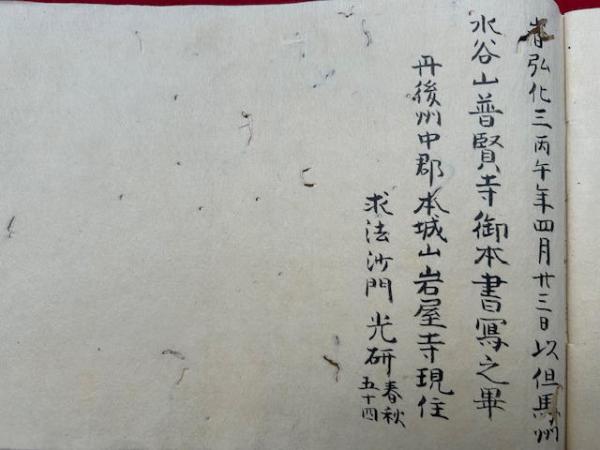 時弘化三丙午年四月廿三日以但馬州
水谷山普賢寺御本書寫之畢
丹後州中郡本城山岩屋寺現住
求法沙門光研春秋
五十四